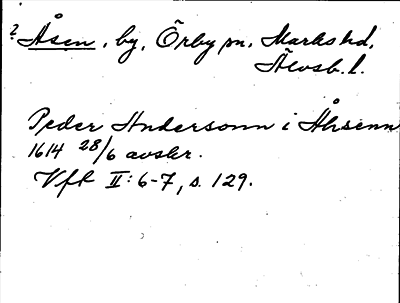 ? Åsen, by, Örby sn, Marks hd,
Älvsb. l.
Peder Andersonn i Åhsenn
1614 28/6 avskr.
Vft II: 6-7, s. 129.